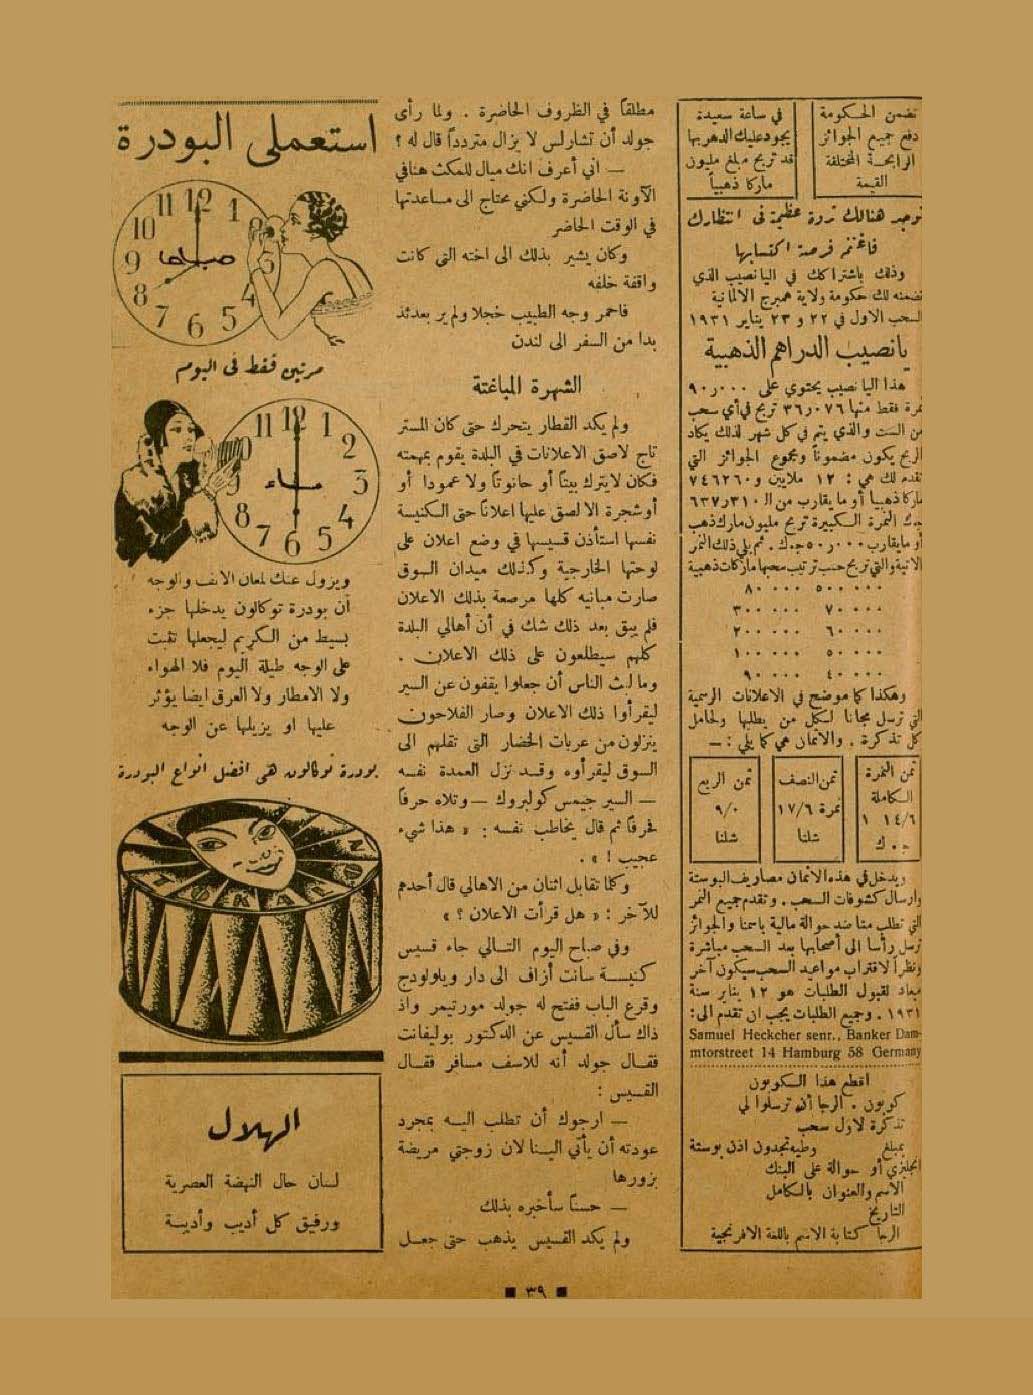 تضمن الحكومة
دفع جميع الجوائز
الرابحة المختلفة
القيمة
في ساعة سعيدة
يجود عليك الدهر بها
قد تربح مبلغ مليون
ماركا ذهبياً
توجد هنالك ثروة عظيمة في انتظارك
فاغتنم فرصة اكتسابها
وذلك باشتراكك في اليانصيب الذي
تضمنه لك حكومة ولاية همبرج الالمانية
السحب الاول في ٢٢ و ٢٣ يناير ١٩٣١
يانصيب الدراهم الذهبية
هذا اليانصيب يحتوي على ٩٠٫٠٠٠
نمرة فقط منها ٣٦٫٠٧٦ تربح في أي سحب
من الست والذي يتم في كل شهر لذلك يكاد
الربح يكون مضموناً ومجموع الجوائز التي
تقدم لك هي : ١٢ ملايين و ٧٤٦٢٦٠
ماركا ذهبيا أو ما يقارب من الـ ٦٣٧٫٣١٠
ج.ك النمرة الكبيرة تربح مليون مارك ذهب
أو ما يقارب ٥٠٫٠٠٠ ج.ك . ثم يلي ذلك النمر
الاتية والتي تربح حسب ترتيب سحبها ماركات ذهبية
٥٠٠ ٠٠٠ ٨٠ ٠٠٠
٧٠ ٠٠٠ ٣٠٠ ٠٠٠
٦٠ ٠٠٠ ٢٠٠ ٠٠٠
٥٠ ٠٠٠ ١٠٠ ٠٠٠
٤٠ ٠٠٠ ٩٠ ٠٠٠
وهكذا كما موضح في الاعلانات الرسمية
التي ترسل مجانا لكل من يطلبها ولحامل
كل تذكرة . والاثمان هي كما يلي : —
ثمن النمرة
الكاملة
١ ١٤/٦
ج.ك
ثمن النصف
نمرة ١٧/٦
شلنا
ثمن الربع
٩/٠
شلنا
ويدخل في هذه الاثمان مصاريف البوستة
وارسال كشوفات السحب . وتقدم جميع النمر
التي تطلب منا ضد حوالة مالية باسمنا والجوائز
ترسل رأسا الى أصحابها بعد السحب مباشرة
ونظراً لاقتراب مواعيد السحب سيكون آخر
ميعاد لقبول الطلبات هو ١٢ يناير سنة
١٩٣١ . وجميع الطلبات يجب ان تقدم الى :
Samuel Heckcher senr., Banker Dam-
mtorstreet 14 Hamburg 58 Germany
اقطع هذا الكوبون
كوبون . الرجا أن ترسلوا لي
تذكرة لاول سحب
بمبلغ وطيه تجدون اذن بوستة
انجليزي أو حوالة على البنك
الاسم والعنوان بالكامل
التاريخ
الرجا كتابة الاسم باللغة الافرنجية
مطلقاً في الظروف الحاضرة . ولما رأى
جولد أن تشارلس لا يزال متردداً قال له ؟
— اني أعرف انك ميال للمكث هنا في
الآونة الحاضرة ولكني محتاج الى مساعدتها
في الوقت الحاضر
وكان يشير بذلك الى اخته التي كانت
واقفة خلفه
فاحمر وجه الطبيب خجلا ولم ير بعدئذ
بدا من السفر الى لندن
الشهرة المباغتة
ولم يكد القطار يتحرك حتى كان المستر
تاج لاصق الاعلانات في البلدة يقوم بمهمته
فكان لا يترك بيتاً أو حانوتاً ولا عمودا أو
أو شجرة الا لصق عليها اعلاناً حتى الكنيسة
نفسها استأذن قسيسها في وضع اعلان على
لوحتها الخارجية وكذلك ميدان السوق
صارت مبانيه كلها مرصعة بذلك الاعلان
فلم يبق بعد ذلك شك في أن أهالي البلدة
كلهم سيطلعون على ذلك الاعلان .
وما لبث الناس أن جعلوا يقفون عن السير
ليقرأوا ذلك الاعلان وصار الفلاحون
ينزلون من عربات الخضار التي تقلهم الى
السوق ليقرأوه وقد نزل العمدة نفسه
— السير جيمس كولبروك — وتلاه حرفاً
فحرفاً ثم قال يخاطب نفسه : « هذا شيء
عجيب ! » .
وكلما تقابل اثنان من الاهالي قال أحدهم
للآخر : « هل قرأت الاعلان ؟ »
وفي صباح اليوم التالي جاء قسيس
كنيسة سانت أزاف الى دار ويلولودج
وقرع الباب ففتح له جولد مورتيمر واذ
ذاك سأل القسيس عن الدكتور بوليفانت
فقال جولد أنه للاسف مسافر فقال
القسيس :
— ارجوك أن تطلب اليه بمجرد
عودته أن يأتي الينا لان زوجتي مريضة
بزورها
— حسناً سأخبره بذلك
ولم يكد القسيس يذهب حتى جعل
استعملى البودرة
12 1 2 3 4 5 6 7 8 9 10 11
صباحا
مرتين فقط في اليوم
12 1 2 3 4 5 6 7 8 9 10 11
مساء
ويزول عنك لمعان الانف والوجه
ان بودرة توكالون يدخلها جزء
بسيط من الكريم ليجعلها تثبت
على الوجه طيلة اليوم فلا الهواء
ولا الامطار ولا العرق ايضا يؤثر
عليها او يزيلها عن الوجه
بودرة توكالون هي افضل انواع البودرة
TOKALON
الهلال
لسان حال النهضة العصرية
ورفيق كل أديب وأديبة
٣٩